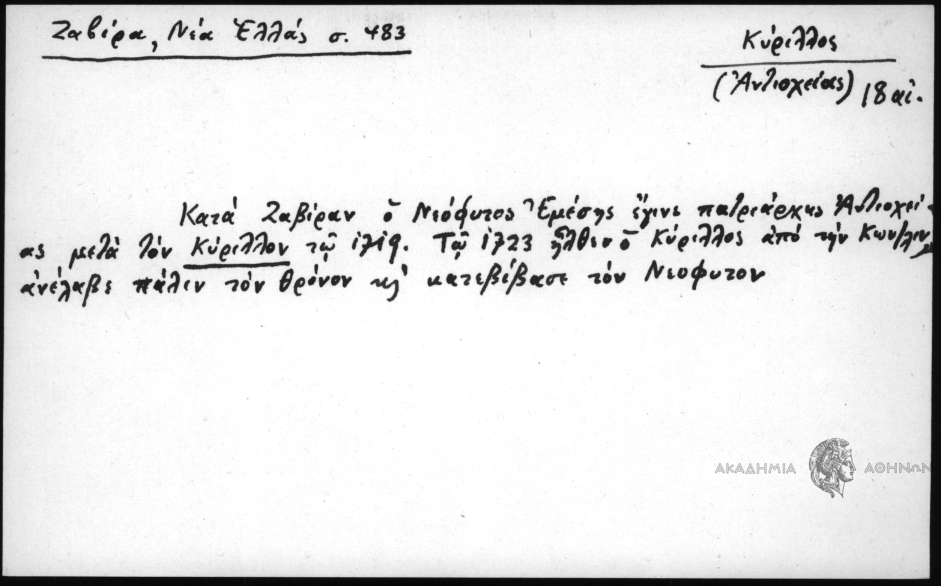 Ζαβίρα, Νέα Ἑλλάς σ. 483
Κύριλλος
(Ἀντιοχείας) 18 αἰ.
Κατά Ζαβίραν ὁ Νεόφυτος Ἐμέσης ἔγινε πατριάρχης Ἀντιοχεί-
ας μετά τόν Κύριλλον τῷ 1719. Τῷ 1723 ἦλθεν ὁ Κύριλλος ἀπό τήν Κων/λιν
ἀνέλαβε πάλιν τόν θρόνον κ' κατεβίβασε τόν Νεοφυτον
ΑΚΑΔΗΜΙΑ ΑΘΗΝΩΝ